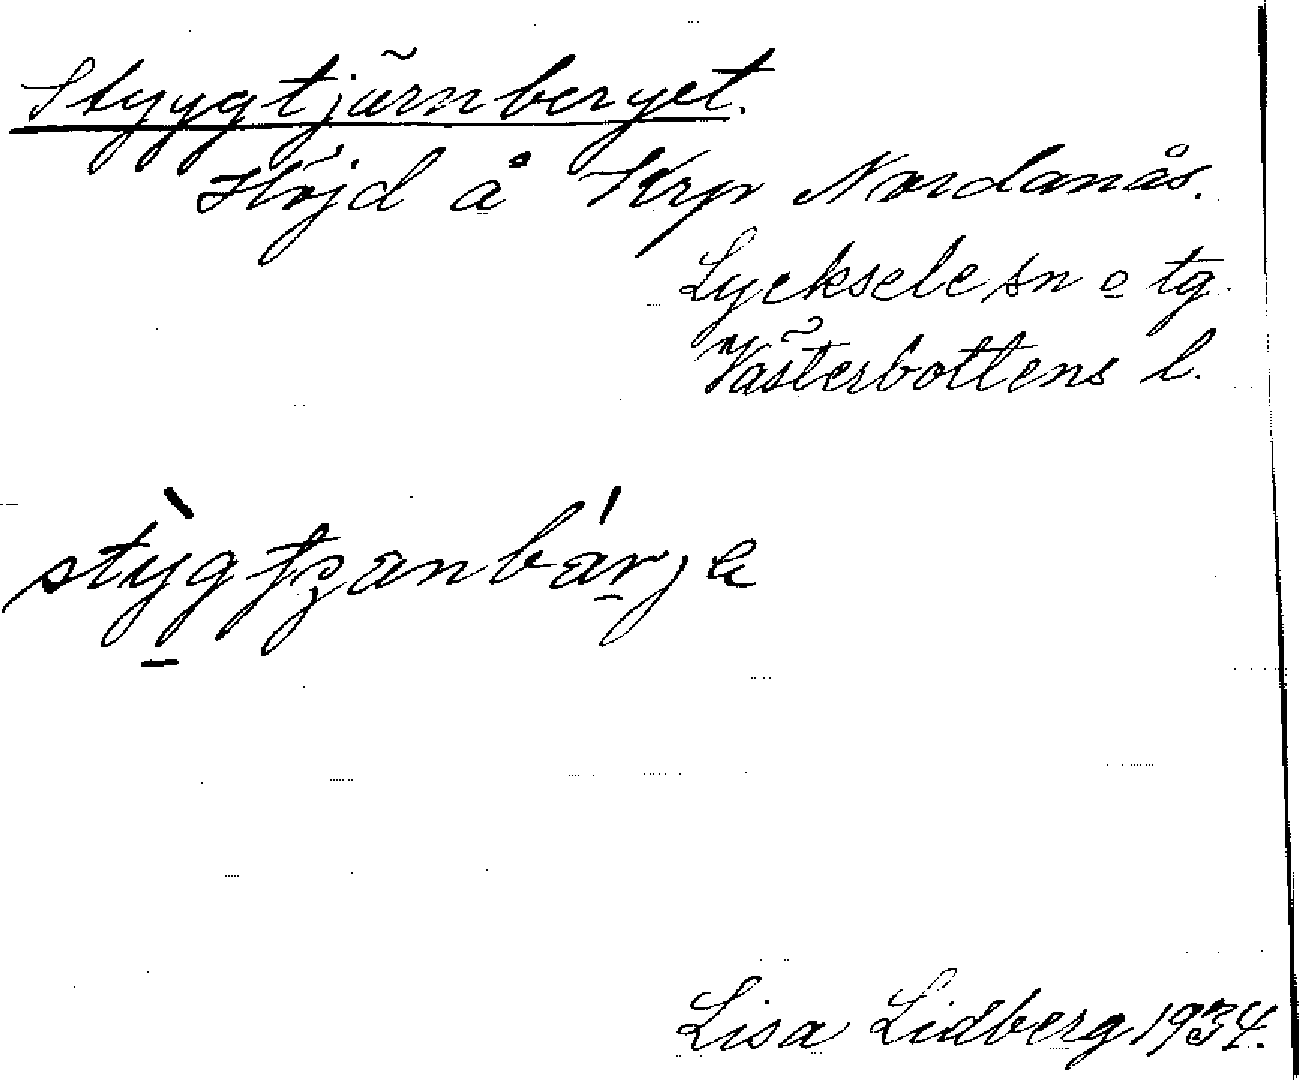 Styggtjärnberget.
Höjd å Krp Nordanås.
Lycksele sn o tg.
Västerbottens l.
Lisa Lidberg 1934.